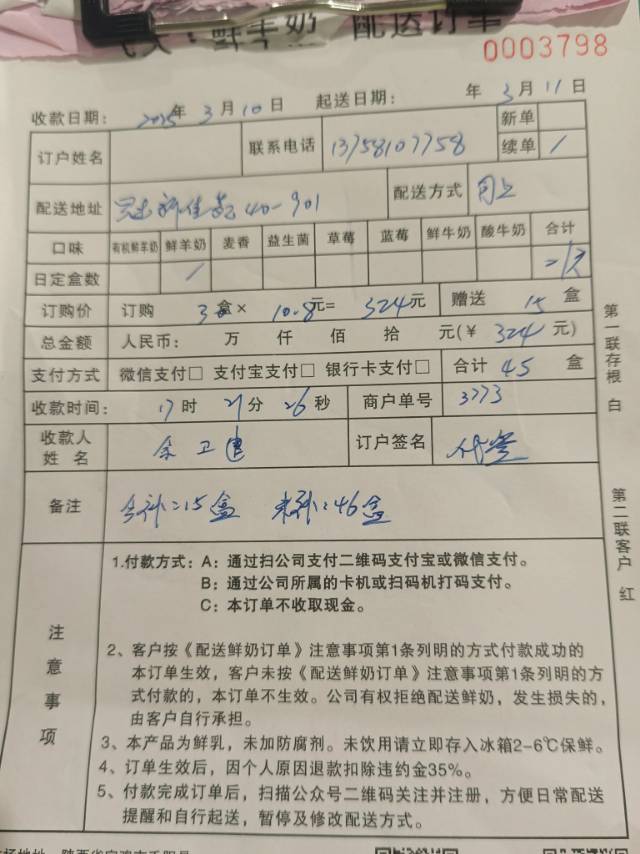 鲜牛奶 配送订单
0003798
收款日期： 2025年 3月10日 起送日期： 年 3月11日
订户姓名 联系电话 13758107758 新单
续单 /
配送地址 40-901 配送方式 同上
口味 有机鲜羊奶 鲜羊奶 麦香 益生菌 草莓 蓝莓 鲜牛奶 酸牛奶 合计
日定盒数 /
订购价 订购 3盒× 10.8元= 324元 赠送 15 盒
总金额 人民币： 万 仟 佰 拾 元(￥ 324 元)
支付方式 微信支付□ 支付宝支付□ 银行卡支付□ 合计 45 盒
收款时间： 17时 21分 26秒 商户单号 3773
收款人姓名 余卫建 订户签名 代签
备注 今补：15盒 未补：46盒
第一联存根 白
第二联客户 红
注意事项
1.付款方式：A：通过扫公司支付二维码支付宝或微信支付。
B：通过公司所属的卡机或扫码机打码支付。
C：本订单不收取现金。
2、客户按《配送鲜奶订单》注意事项第1条列明的方式付款成功的
本订单生效，客户未按《配送鲜奶订单》注意事项第1条列明的方
式付款的，本订单不生效。公司有权拒绝配送鲜奶，发生损失的，
由客户自行承担。
3、本产品为鲜乳，未加防腐剂。未饮用请立即存入冰箱2-6℃保鲜。
4、订单生效后，因个人原因退款扣除违约金35%。
5、付款完成订单后，扫描公众号二维码关注并注册，方便日常配送
提醒和自行起送，暂停及修改配送方式。